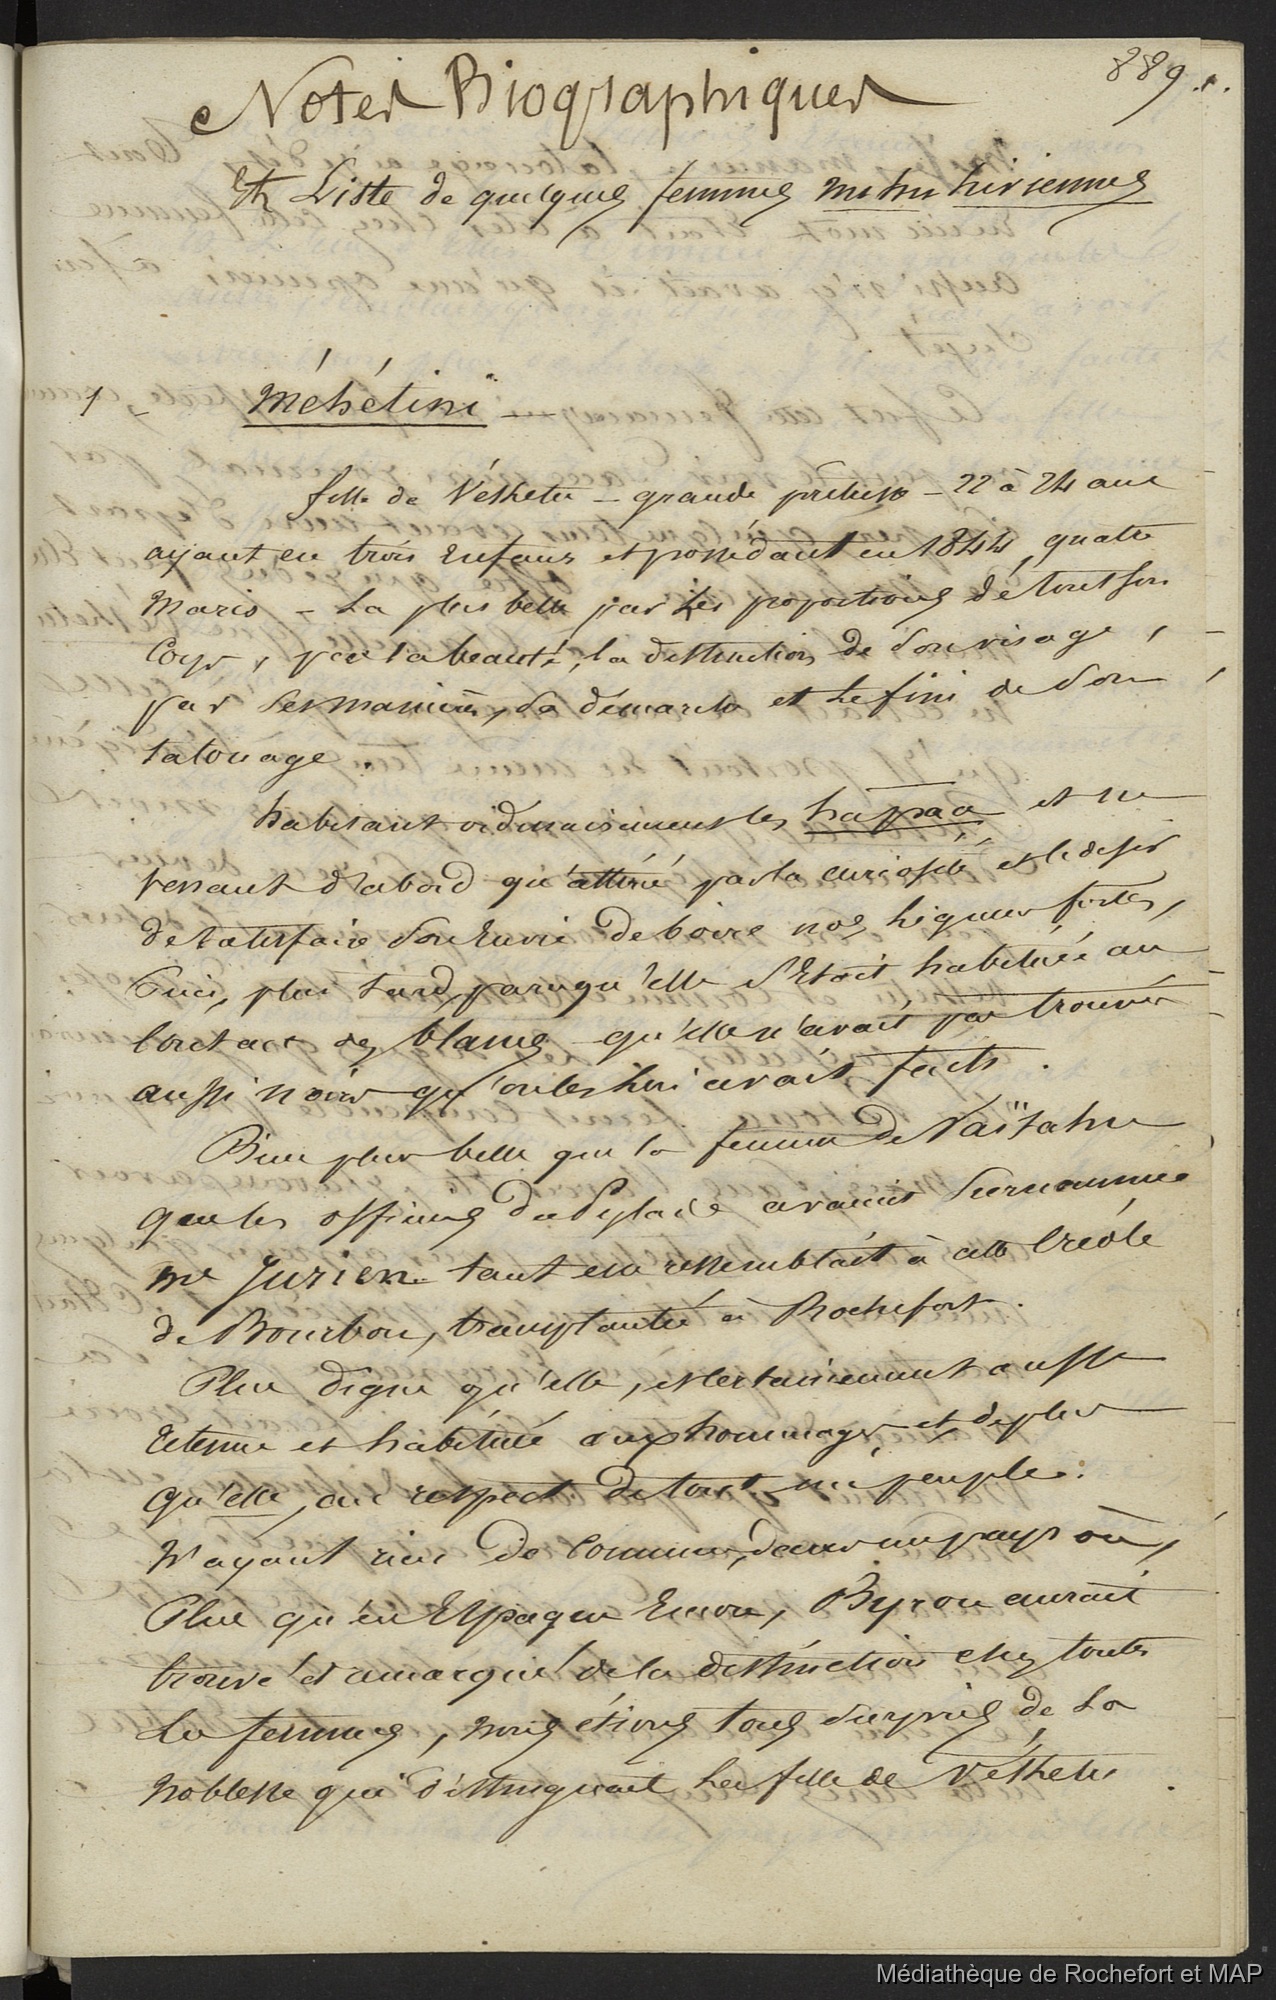 889.
Notes Biographiques
Et Liste de quelques femmes nuhu hiviennes
1 - Méhétini -
fille de Vékhétu - grande prêtresse - 22 à 24 ans
ayant eu trois Enfans et possédant en 1844 quatre
Maris - La plus belle par les proportions de tout son
Corps, par la beauté, la distinction de son visage,
par ses manières, sa démarche et le fini de son
tatouage.
habitant ordinairement les hapaa et ne
venant d'abord qu'attirée par la curiosité et le désir
de satisfaire son Envie de boire nos liqueurs fortes,
Puis, plus tard, parcequ'elle s'Etait habituée au
Contact des blancs qu'elle n'avait pas trouvés
aussi noirs qu'on les lui avait faits.
Bien plus belle que la femme de Vaïtahu
que les officiers du Pylade avaient surnommée
me Jurien tant elle ressemblait à cette Créole
de Bourbon, transplantée à Rochefort.
Plus digne qu'elle, et certainement aussi
et habituée aux hommages, et de plus
qu'elle, au respect de tout un peuple.
N'ayant rien de commun, dans un pays où,
Plus qu'en Espagne Encore, Byron aurait
trouvé et remarqué de la distinction chez toutes
les femmes, nous étions tous surpris de la
noblesse qui distinguait la fille de Vékhétu.
Médiathèque de Rochefort et MAP